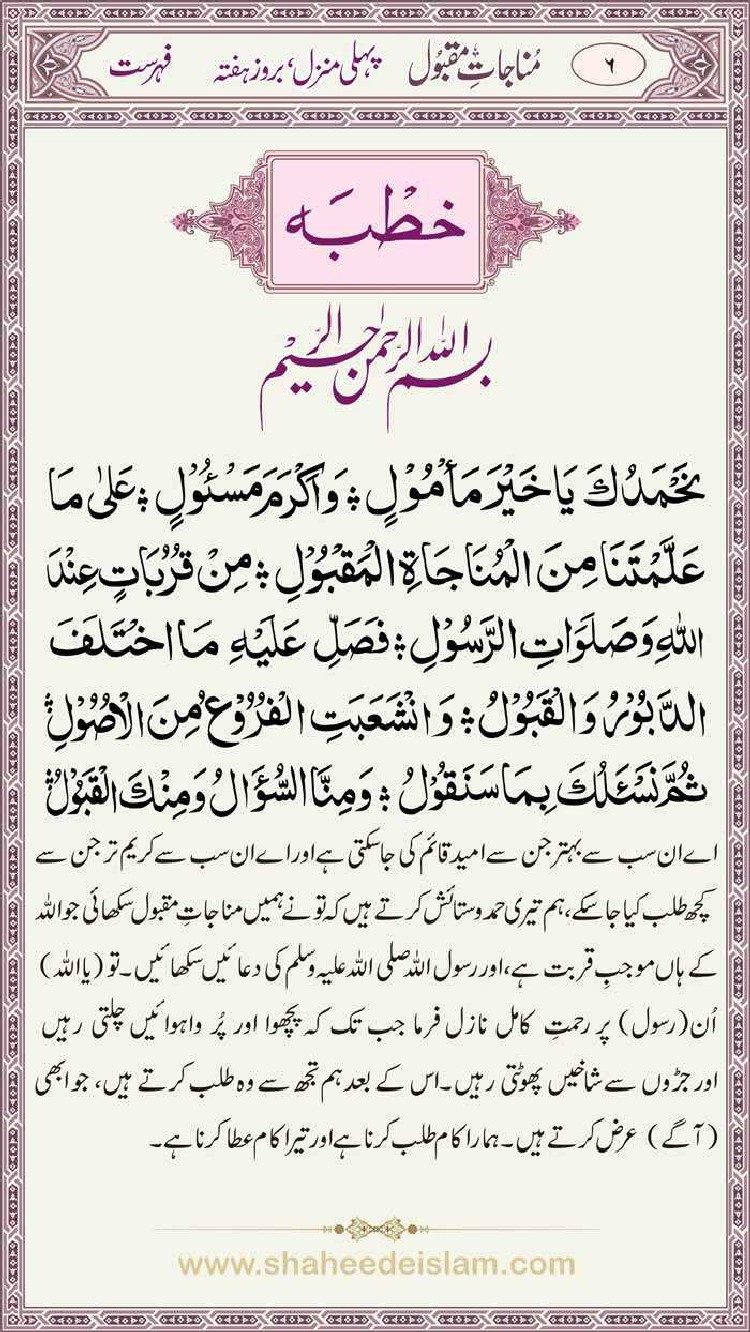 ۶ مُناجاتِ مقبُول پہلی منزل، بروز ہفتہ فہرست
خطبہ
بسم اللہ الرحمٰن الرحیم
نَحْمَدُكَ يَا خَيْرَ مَأْمُوْلٍ ؞ وَاَكْرَمَ مَسْئُوْلٍ ؞ عَلٰى مَا
عَلَّمْتَنَا مِنَ الْمُنَاجَاةِ الْمَقْبُوْلِ ؞ مِنْ قُرُبَاتٍ عِنْدَ
اللهِ وَصَلَوَاتِ الرَّسُوْلِ ؞ فَصَلِّ عَلَيْهِ مَا اخْتَلَفَ
الدَّبُوْرُ وَالْقَبُوْلُ ؞ وَانْشَعَبَتِ الْفُرُوْعُ مِنَ الْاُصُوْلِ ؞
ثُمَّ نَسْئَلُكَ بِمَا سَنَقُوْلُ ؞ وَمِنَّا السُّؤَالُ وَمِنْكَ الْقَبُوْلُ ؞
اے ان سب سے بہتر جن سے امید قائم کی جاسکتی ہے اور اے ان سب سے کریم تر جن سے
کچھ طلب کیا جاسکے، ہم تیری حمد و ستائش کرتے ہیں کہ تو نے ہمیں مناجاتِ مقبول سکھائی جو اللہ
کے ہاں موجبِ قربت ہے، اور رسول اللہ صلی اللہ علیہ وسلم کی دعائیں سکھائیں۔ تو (یا اللہ)
اُن (رسول) پر رحمتِ کامل نازل فرما جب تک کہ پچھوا اور پُروا ہوائیں چلتی رہیں
اور جڑوں سے شاخیں پھوٹتی رہیں۔ اس کے بعد ہم تجھ سے وہ طلب کرتے ہیں، جو ابھی
(آگے) عرض کرتے ہیں۔ ہمارا کام طلب کرنا ہے اور تیرا کام عطا کرنا ہے۔
www.shaheedeislam.com